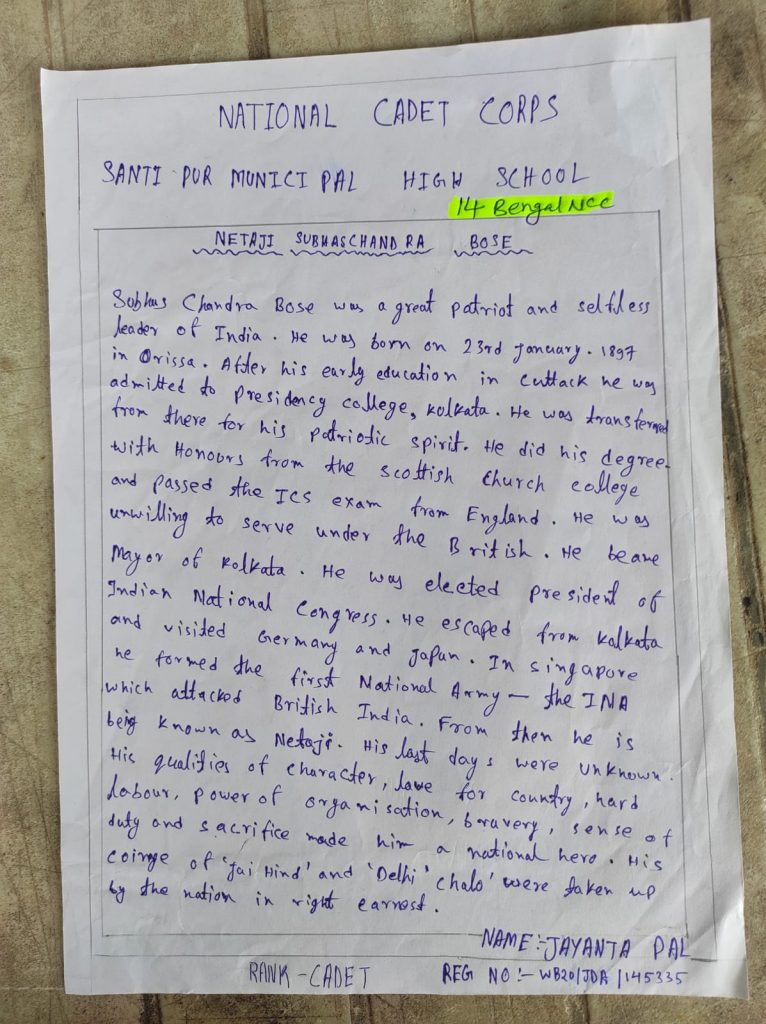 NATIONAL CADET CORPS
SANTI PUR MUNICI PAL HIGH SCHOOL
14 Bengal NCC
NETAJI SUBHASCHANDRA BOSE
Subhas Chandra Bose was a great patriot and selfless
leader of India. He was born on 23rd January. 1897
in Orissa. After his early education in Cuttack he was
admitted to Presidency college, Kolkata. He was transferred
from there for his patriotic spirit. He did his degree
with Honours from the Scottish Church college
and passed the ICS exam from England. He was
unwilling to serve under the British. He beame
Mayor of Kolkata. He was elected president of
Indian National Congress. He escaped from Kalkata
and visited Germany and Japan. In singapore
he formed the first National Army — the INA
which attacked British India. From then he is
beig known as Netaji. His last days were unknown.
His qualities of character, love for country, hard
labour, power of organisation, bravery, sense of
duty and sacrifice made him a national hero. His
coinge of 'Jai Hind' and 'Delhi chalo' were taken up
by the nation in right earnest.
NAME:-JAYANTA PAL
RANK-CADET REG NO:- WB20/JDA/145335